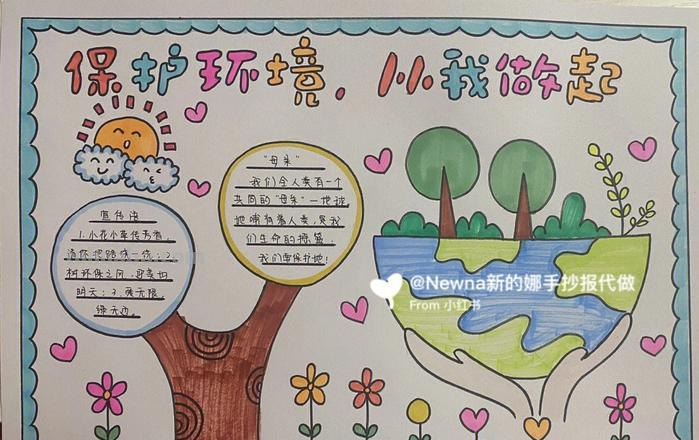 保护环境,从我做起
"母亲"
我们全人类有一个
共同的"母亲"—地球,
她哺育着人类,是我
们生命的摇篮,
我们要保护她!
宣传语
1.小花小草传芳香,
请你把路绕一绕;2.
树环保之风,身美的
明天;3.美无限,
绿无边。
@Newna新的娜手抄报代做
From 小红书